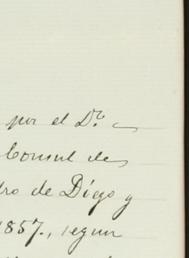 por el D.ⁿ
Consul de
dro de Diego y
1857., segun